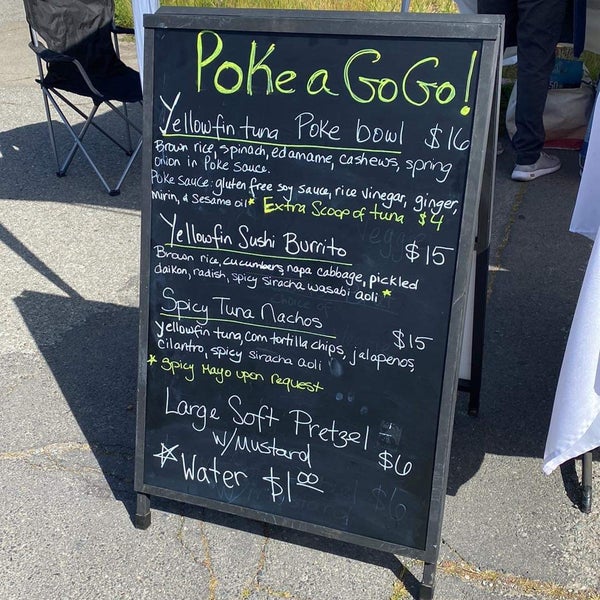 Poke a GoGo!
Yellowfin tuna Poke bowl $16
Brown rice, spinach, edamame, cashews, spring
onion in Poke sauce.
Poke sauce: gluten free soy sauce, rice vinegar, ginger,
Mirin, & Sesame oil * Extra Scoop of tuna $4
Yellowfin Sushi Burrito $15
Brown rice, cucumbers, napa cabbage, pickled
daikon, radish, spicy siracha wasabi aoli *
Spicy Tuna Nachos $15
yellowfin tuna, corn tortilla chips, jalapenos,
cilantro, spicy siracha aoli
* Spicy Mayo upon request
Large Soft Pretzel
w/Mustard $6
Water $1.00